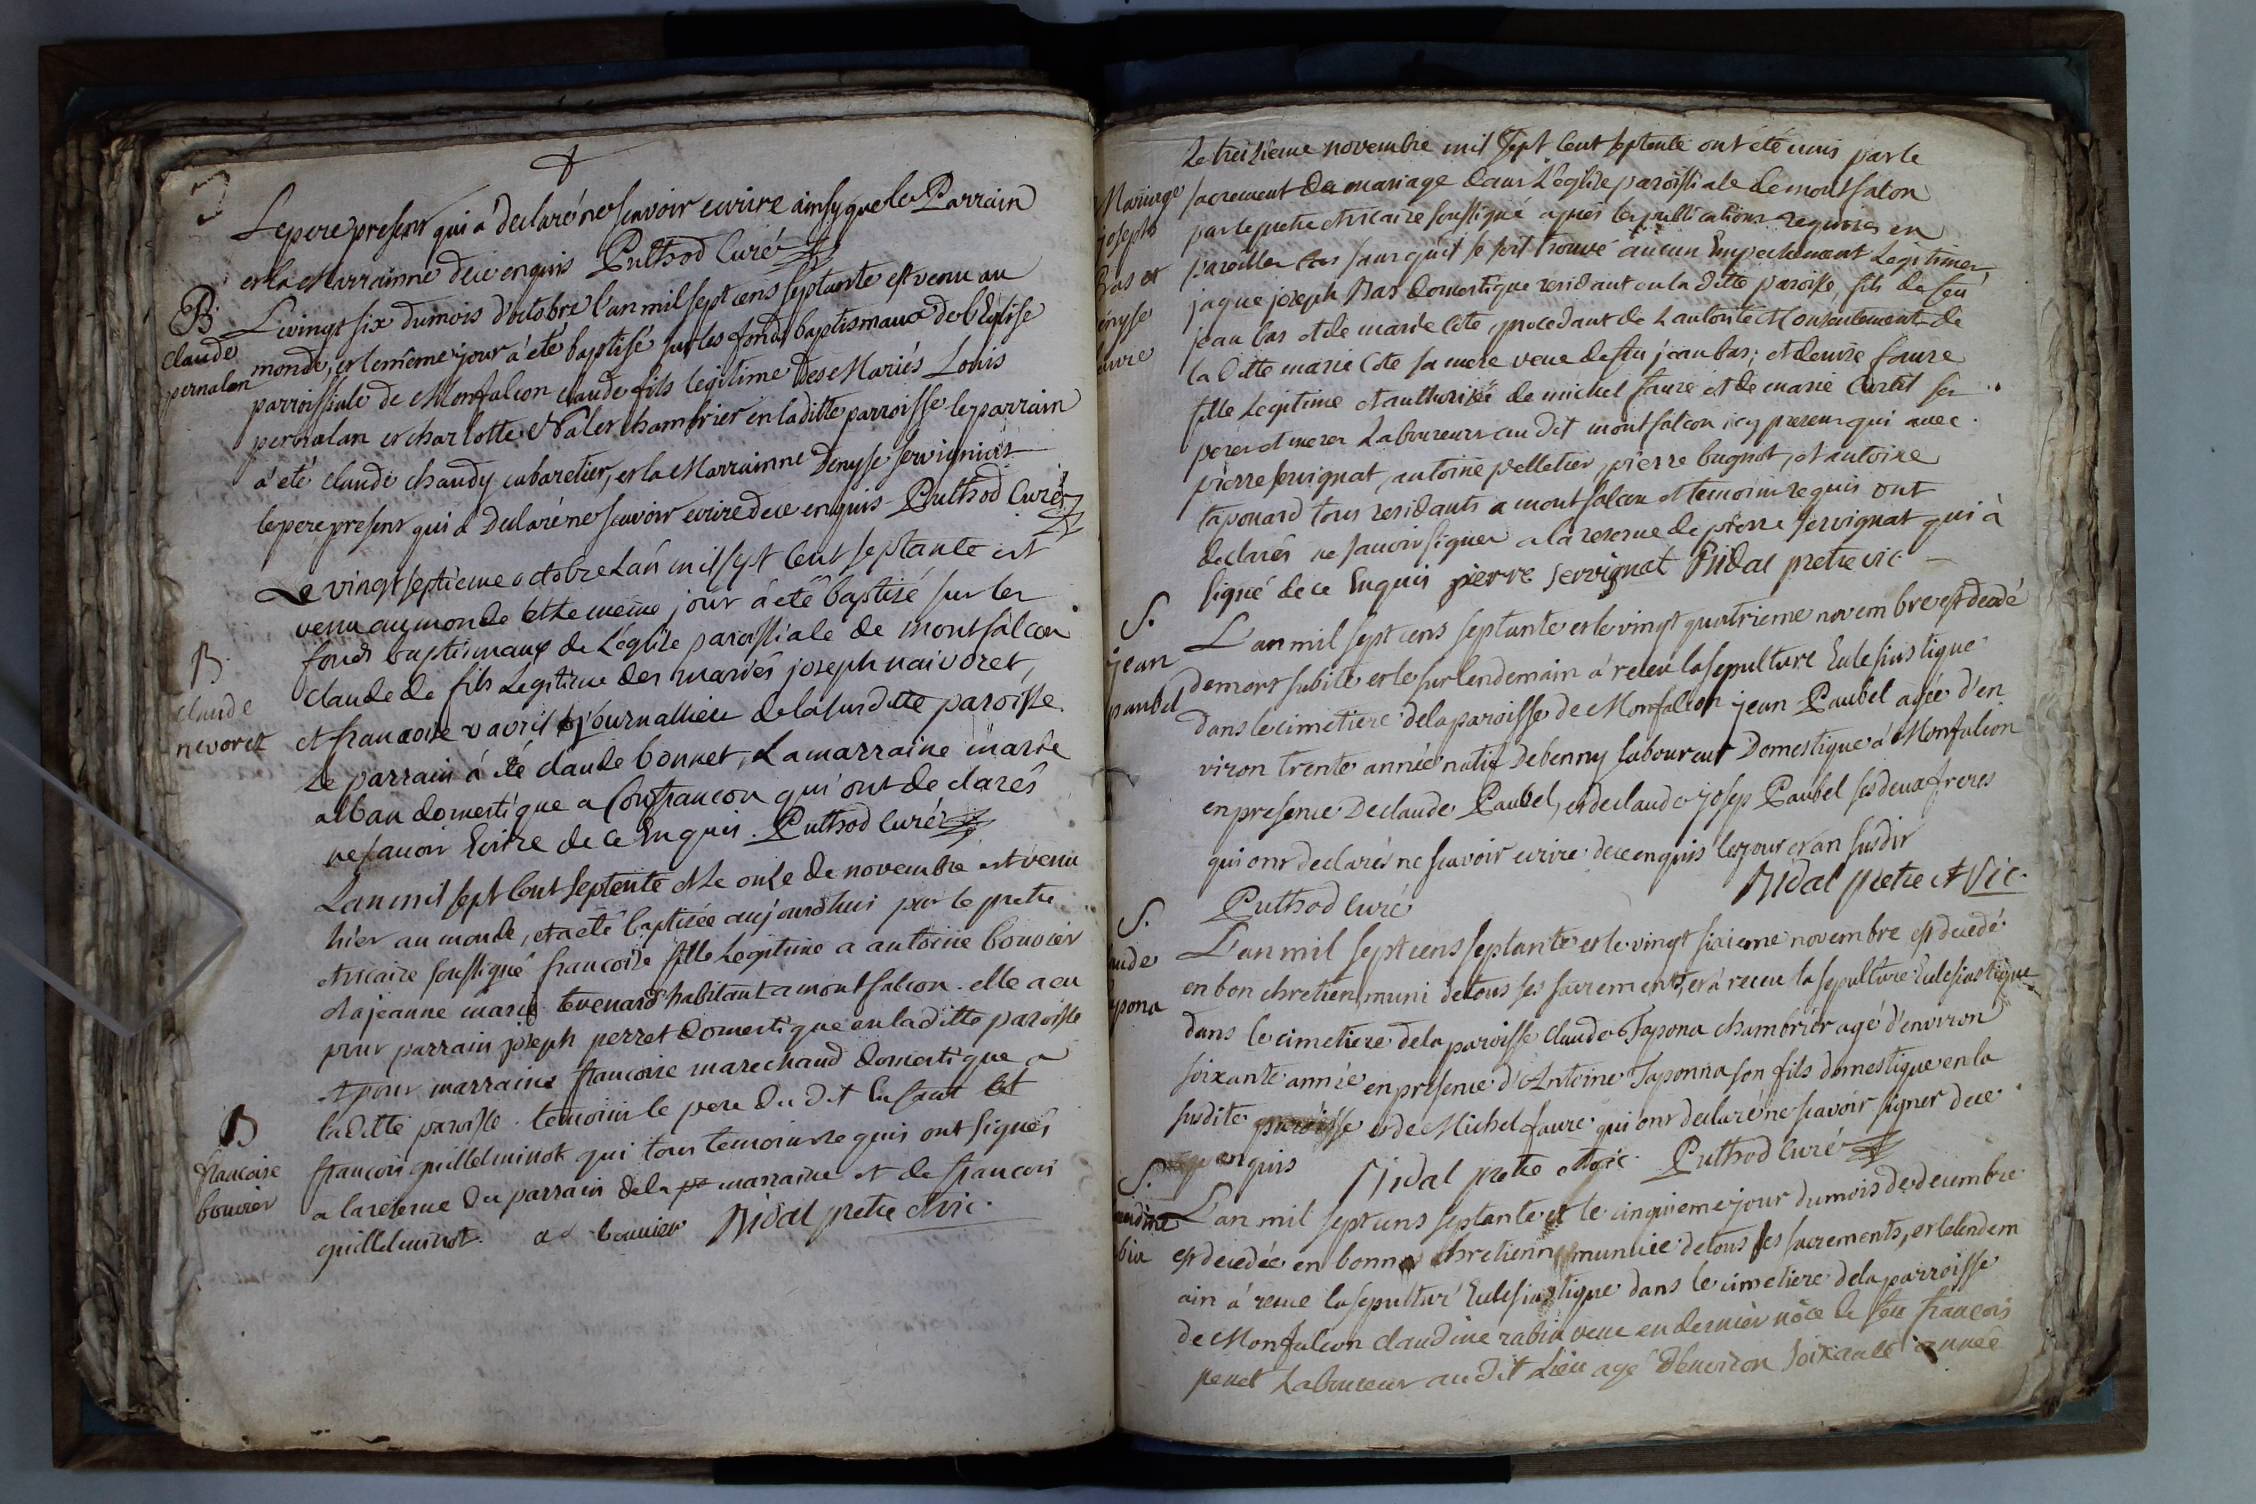 Le pere present qui a declaré ne scavoir ecrire ainsy que le Parrain
et la Marrainne de ce enquis Puthod Curé
B
claude
pernalan
Le vingt six du mois d'octobre l'an mil sept cens septante est venu au
monde, et le même jour a été baptisé sur les fonds baptismaux de l'Eglise
parroissiale de Monfalcon claude fils legitime des Mariés Louis
pernalan et charlotte Nalet chambrier en laditte parroisse le parrain
a été claude chaudy cabaretier, et la Marrainne Denyse servignat
le pere present qui a declaré ne scavoir ecrire de ce enquis Puthod Curé
B
claude
nevoret
Le vingt septieme octobre L'an mil sept Cent septante est
venu au monde et Le meme jour a été baptisé sur les
fonds baptismaux de L'eglise paroissiale de montfalcon
claude de fils Legitime des mariés joseph naivoret,
et francoise vavril journalliere de la susditte paroisse
Le parrain a été claude bonnet, La marraine marie
alban domestique a Confrancon qui ont declarés
ne savoir Ecrire de ce Enquis. Puthod Curé
B
francoise
bouvier
L'an mil sept Cent Septente et Le onze de novembre est venu
hier au monde, et a eté baptisée aujourdhui par le pretre
et vicaire soussigné francoise fille Legitime a antoine bouvier
et a jeanne marie tevenard habitant a montfalcon. elle a eu
pour parrain joseph perret domestique en la ditte paroisse
et pour marraine francoise marechaud domestique a
laditte paroisse. temoins le pere du dit Enfant et
francois guillelminot qui tous temoins requis ont signés
a la reserve du parrain de la marraine et de francois
guillelminot. a bouvier Nidal pretre et vic.
Mariage
joseph
Bas et
Le treizieme novembre mil sept Cent septente ont été unis par le
sacrement de mariage dans L'eglise paroissiale de montfalcon
par le pretre et vicaire soussigné apres les publications requises en
pareilles Cas sans qu'il se soit trouvé aucun Empechement Legitimes,
jaque joseph Bas domestique residant en la ditte paroisse, fils de feu
jean bas et de marie Cote procedant de L'autorité et Consentement de
la ditte marie Cote sa mere veue de feu jean bas; et denise faure
fille Legitime et authorisé de michel faure et de marie Curtil ses
peres et meres Laboureurs au dit montfalcon icy presens qui avec
pierre servignat, antoine pelletier, pierre bugnot, et antoine
taponard tous residants a montfalcon et temoins requis ont
declarés ne savoir signer a la reserve de pierre servignat qui a
signé de ce Enquis pierre servignat Nidal pretre vic
S.
jean
paubel
L'an mil sept cens septante et le vingt quatrieme novembre est decedé
de mort subite et le surlendemain a receu la sepulture Eclesiastique
dans le cimetiere de la paroisse de Monfalcon jean Paubel agée d'en
viron trente année natif de benny laboureur Domestique a Monfalcon
en presence de claude Paubel, et de claude josep Paubel ses deux freres
qui ont declarés ne scavoir ecrire de ce enquis les jour et an susdit
Puthod Curé Nidal pretre et Vic.
S.
L'an mil sept cens septante et le vingt sixieme novembre est decedé
en bon chretien muni de tous ses sacrements, et a receu la sepulture Eclesiastique
dans le cimetiere de la paroisse claude Tapona chambrier agé d'environ
soixante année en presence d'Antoine Taponna son fils domestique en la
susdite paroisse et de Michel faure qui ont declaré ne scavoir signer de ce
enquis Nidal pretre et vic. Puthod Curé
S.
L'an mil sept cens septante et le cinquieme jour du mois de decembre
est decedée en bonne chretienne munie de tous ses sacrements, et le lendem
ain a receue la sepultur Eclesiastique dans le cimetiere de la parroisse
de Monfalcon claudine rabin veue en dernier nôce de feu francois
penet Laboureur au dit Lieu agé d'environ soixante année